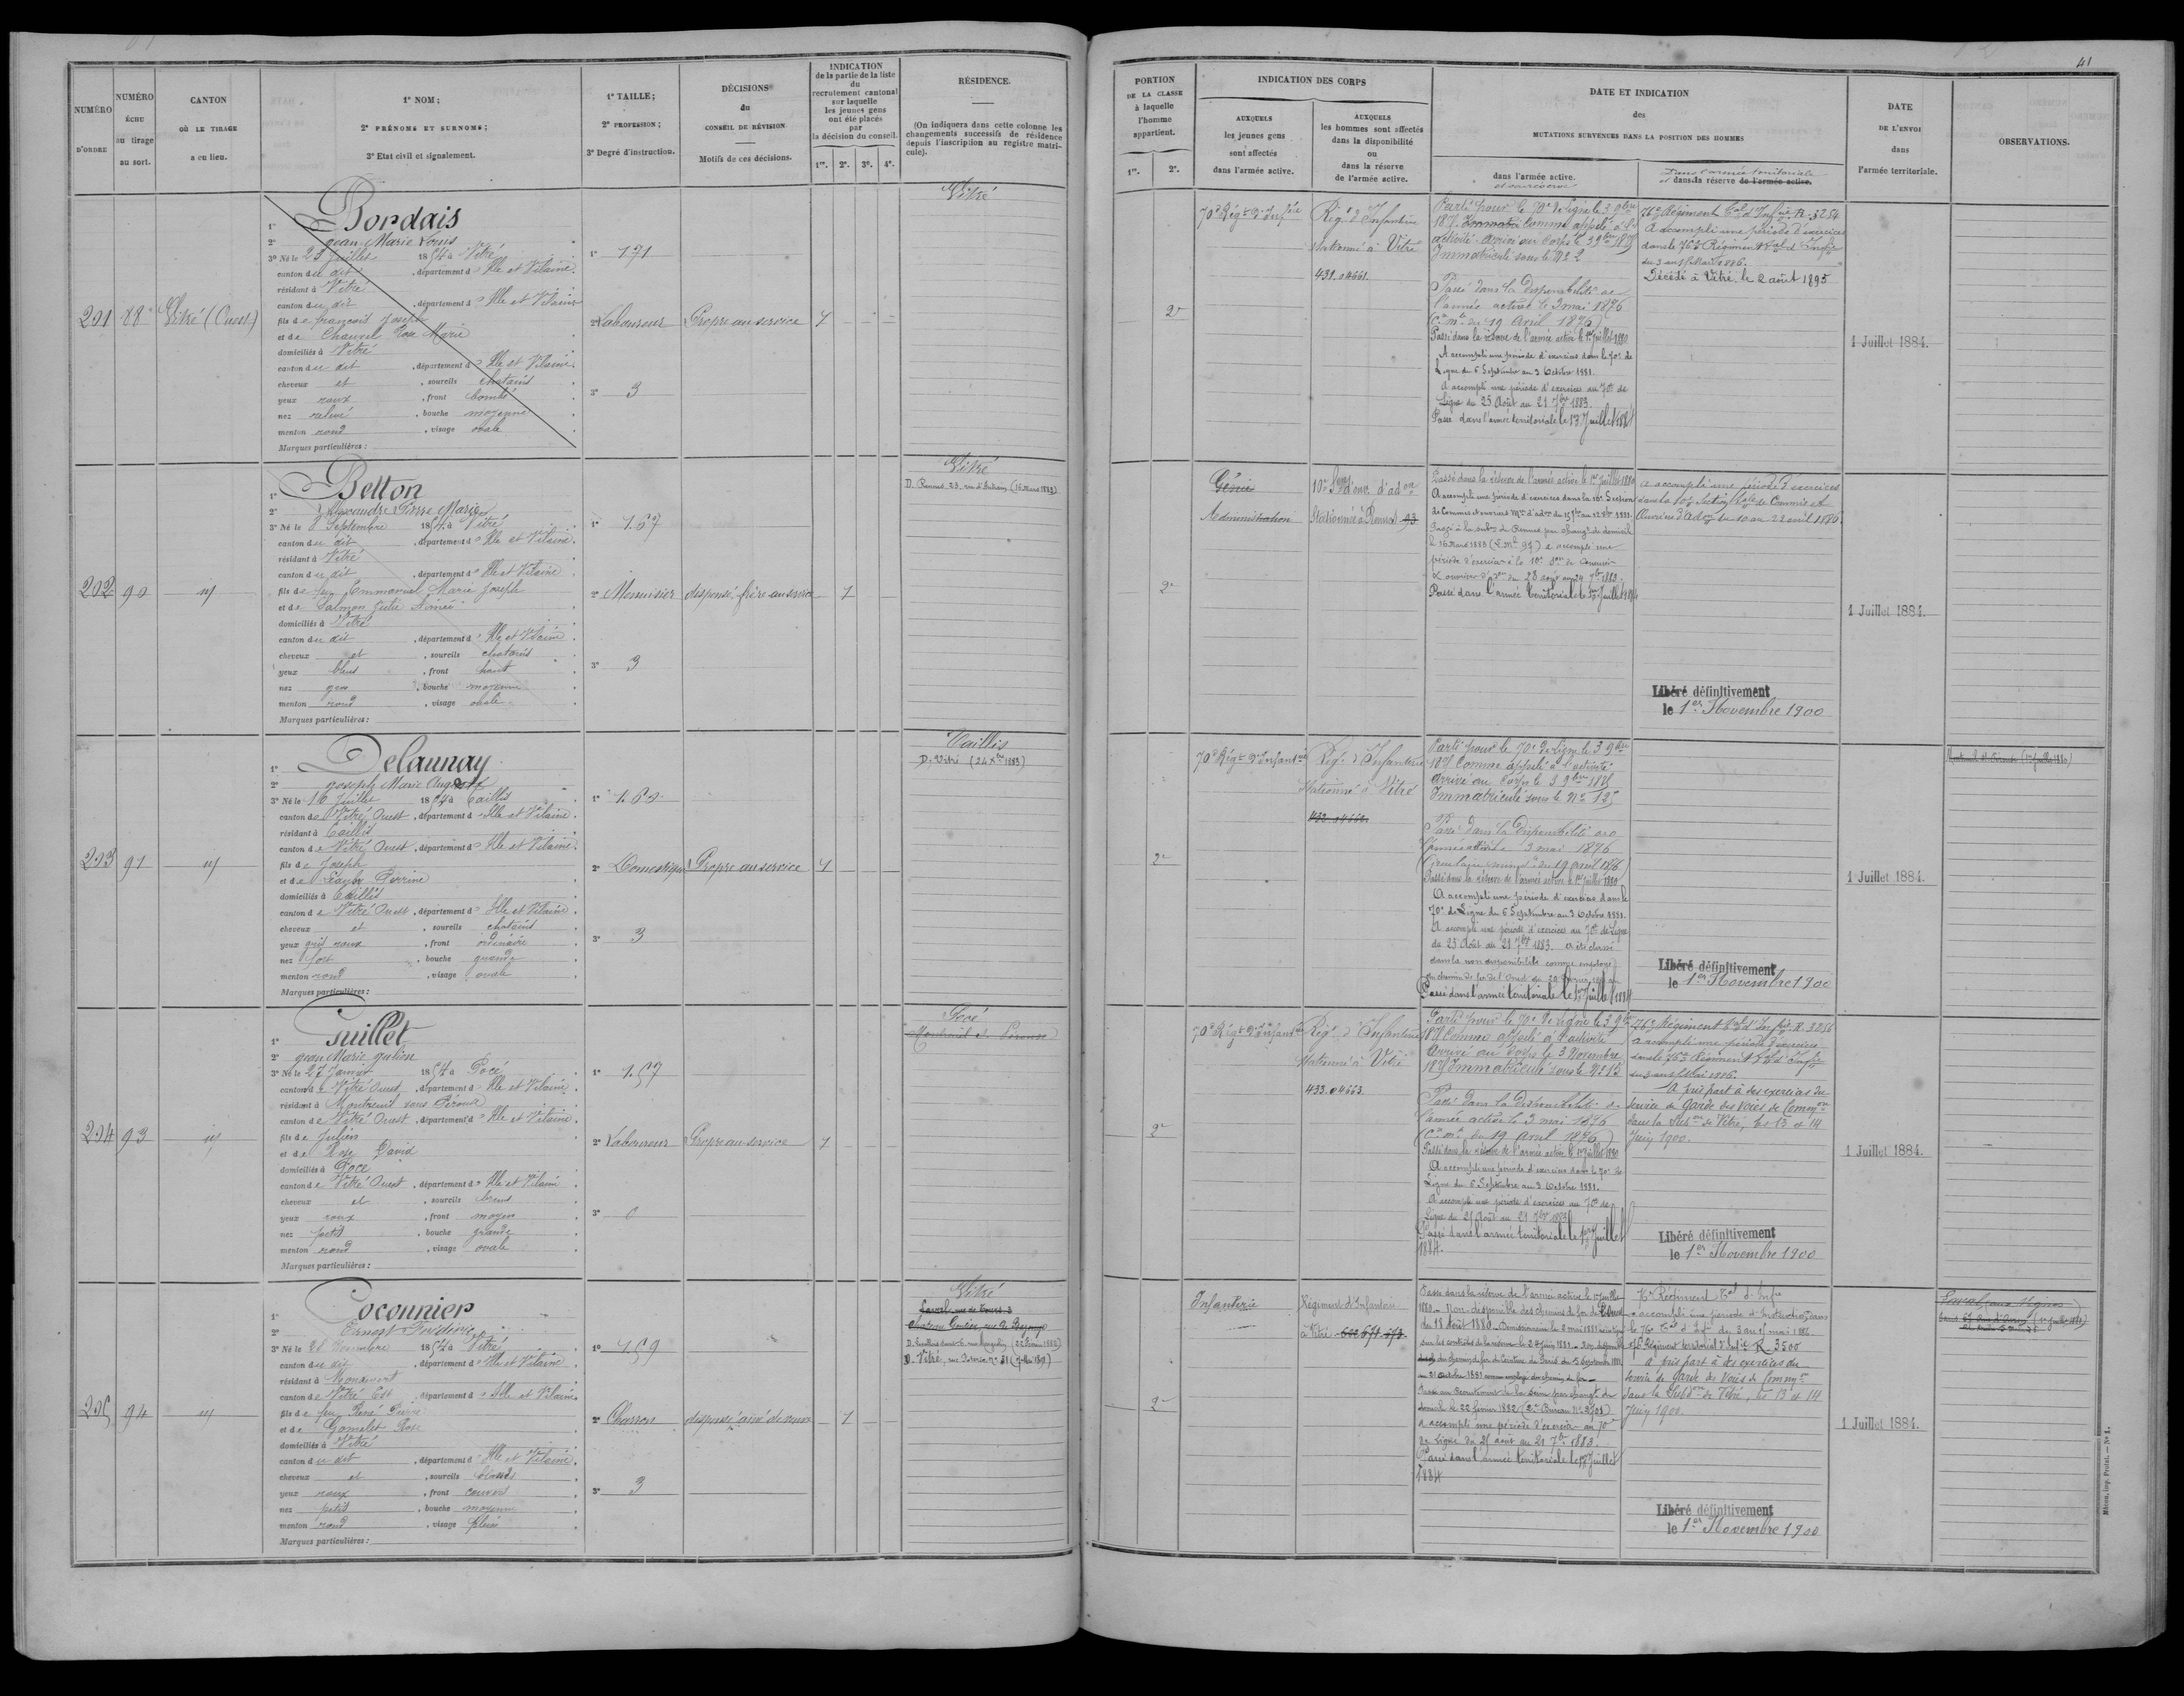 41
NUMÉRO D'ORDRE
NUMÉRO ÉCHU au tirage au sort.
CANTON OÙ LE TIRAGE a eu lieu.
1° NOM;
2° PRÉNOMS ET SURNOMS;
3° Etat civil et signalement.
1° TAILLE;
2° PROFESSION;
3° Degré d'instruction.
DÉCISIONS du CONSEIL DE RÉVISION
Motifs de ces décisions.
INDICATION
de la partie de la liste
du
recrutement cantonal
sur laquelle
les jeunes gens
ont été placés
par
la décision du conseil.
1re. 2e. 3e. 4e.
RÉSIDENCE.
(On indiquera dans cette colonne les
changements successifs de résidence
depuis l'inscription au registre matri-
cule).
PORTION
DE LA CLASSE
à laquelle
l'homme
appartient.
1re. 2e.
INDICATION DES CORPS
AUXQUELS
les jeunes gens
sont affectés
dans l'armée active.
AUXQUELS
les hommes sont affectés
dans la disponibilité
ou
dans la réserve
de l'armée active.
DATE ET INDICATION
des
MUTATIONS SURVENUES DANS LA POSITION DES HOMMES
dans l'armée active.
et sa réserve
Dans l'armée territoriale
et dans la réserve de l'armée active.
DATE
DE L'ENVOI
dans
l'armée territoriale.
OBSERVATIONS.
201 88 Vitré (Ouest)
1° Bordais
2° Jean Marie Louis
3° Né le 25 Juillet 1854 à Vitré
canton du dit, département d'Ille et Vilaine.
résidant à Vitré
canton du dit, département d'Ille et Vilaine
fils de françois Joseph
et de Chauvel Rose Marie
domiciliés à Vitré
canton du dit, département d'Ille et Vilaine.
cheveux et, sourcils chatains
yeux roux, front bombé
nez relevé, bouche moyenne
menton rond, visage ovale
Marques particulières:
1° 1.71
2° Laboureur
3° 3
Propre au service
1
Vitré
2e
70e Régt d'Infie
Régt d'Infanterie
stationné à Vitré
431.04661.
Parti pour le 70e de ligne le 3 9bre
1875 comme appelé à l'
activité. Arrivé au Corps le 3 9bre 1875
Immatriculé sous le No 2
Passé dans la disponibilité de
l'armée active le 3 mai 1876
(Ce mle du 19 Avril 1876)
Passé dans la réserve de l'armée active le 1er Juillet 1880
A accompli une période d'exercices dans le 70e de
Ligne du 6 Septembre au 3 Octobre 1881.
A accompli une période d'exercices au 70e de
Ligne du 25 Août au 21 7bre 1883.
Passé dans l'armée territoriale le 1er Juillet 1884
76e Régiment tal d'Infie R. 3254
A accompli une période d'exercices
dans le 76e Régiment tal d'Infie
du 3 au 15 Mai 1886.
Décédé à Vitré le 2 août 1895
1 Juillet 1884.
202 90 id
1° Betton
2° Alexandre Pierre Marie
3° Né le 8 Septembre 1854 à Vitré
canton du dit, département d'Ille et Vilaine.
résidant à Vitré
canton du dit, département d'Ille et Vilaine
fils de feu Emmanuel Marie Joseph
et de Salmon Aimée
domiciliés à Vitré
canton du dit, département d'Ille et Vilaine.
cheveux et, sourcils chatains
yeux bleus, front haut
nez gros, bouche moyenne
menton rond, visage ovale
Marques particulières:
1° 1.67
2° Menuisier
3° 3
dispensé, frère au service
1
Vitré
D. Rennes 23, rue d'Antrain (16 Mars 1883)
2e
Génie
Administration
10e Son d'ouv. d'adon
Stationnée à Rennes 93
Passé dans la réserve de l'armée active le 1er Juillet 1880
A accompli une période d'exercices dans la 10e Section
de Commis et ouvriers
le 16 Mars 1883 a accompli une
période d'exercices à la 10e Son de Commis
& ouvriers d'Adon du 28 août au 24 7bre 1883.
Passé dans l'armée territoriale le 1er Juillet 1884
a accompli une période d'exercices
dans la 10e Section tale de Commis et
Ouvriers d'Adon du 10 au 22 avril 1886
Libéré définitivement
le 1er Novembre 1900
1 Juillet 1884.
203 91 id
1° Delaunay
2° Joseph Marie Auguste
3° Né le 16 Juillet 1854 à Taillis
canton de Vitré Ouest, département d'Ille et Vilaine.
résidant à Taillis
canton de Vitré Ouest, département d'Ille et Vilaine.
fils de Joseph
et de Perrine
domiciliés à Taillis
canton de Vitré Ouest, département d'Ille et Vilaine.
cheveux et, sourcils chatains
yeux gris roux, front ordinaire
nez fort, bouche grande
menton rond, visage ovale
Marques particulières:
1° 1.60
2° Domestique
3° 3
Propre au service
1
Taillis
D. Vitré (24 Xbre 1883)
2e
70e Régt d'Infanterie
Régt d'Infanterie
stationné à Vitré
432.04662.
Parti pour le 70e de ligne le 3 9bre
1875 comme appelé à l'activité
Arrivé au Corps le 3 9bre 1875
Immatriculé sous le No 12
Passé dans la disponibilité de
l'armée active le 3 mai 1876
(Circulaire minle du 19 avril 1876)
Passé dans la réserve de l'armée active le 1er juillet 1880
A accompli une période d'exercices dans le
70e de Ligne du 6 Septembre au 3 Octobre 1881.
A accompli une période d'exercices au 70e de Ligne
du 25 Août au 21 7bre 1883. a été classé
dans la non disponibilité comme employé
au chemin de fer de l'Ouest
Passé dans l'armée territoriale le 1er Juillet 1884
Libéré définitivement
le 1er Novembre 1900
1 Juillet 1884.
204 93 id
1° Guillet
2° Jean Marie Julien
3° Né le 27 Janvier 1854 à Pocé
canton de Vitré Ouest, département d'Ille et Vilaine
résidant à Montreuil sous Pérouse
canton de Vitré Ouest, département d'Ille et Vilaine
fils de Julien
et de Rose David
domiciliés à Pocé
canton de Vitré Ouest, département d'Ille et Vilaine
cheveux et, sourcils bruns
yeux roux, front moyen
nez petit, bouche grande
menton rond, visage ovale
Marques particulières:
1° 1.57
2° Laboureur
3° 0
Propre au service
1
Pocé
Montreuil s. Pérouse
2e
70e Régt d'Infanterie
Régt d'Infanterie
stationné à Vitré
433.04663.
Parti pour le 70e de ligne le 3 9bre
1875 comme appelé à l'activité
Arrivé au Corps le 3 Novembre
1875 Immatriculé sous le No 15
Passé dans la disponibilité de
l'armée active le 3 mai 1876
(Ce mle du 19 Avril 1876)
Passé dans la réserve de l'armée active le 1er Juillet 1880
A accompli une période d'exercices dans le 70e de
Ligne du 6 Septembre au 3 Octobre 1881.
A accompli une période d'exercices au 70e de
Ligne du 25 Août au 21 7bre 1883
Passé dans l'armée territoriale le 1er Juillet
1884.
76e Régiment tal d'Infie R. 3256
a accompli une période d'exercices
dans le 76e Régiment tal d'Infie
du 3 au 15 Mai 1886.
A pris part à des exercices du
service de Garde des Voies de Common
dans la Subon de Vitré, les 13 et 14
Juin 1900.
Libéré définitivement
le 1er Novembre 1900
1 Juillet 1884.
205 94 id
1° Coconnier
2° Ernest Frédéric
3° Né le 28 1854 à Vitré
canton du dit, département d'Ille et Vilaine
résidant à
canton de Vitré Est, département d'Ille et Vilaine
fils de feu René Pierre
et de Gomelet Rose
domiciliés à Vitré
canton du dit, département d'Ille et Vilaine
cheveux et, sourcils blonds
yeux roux, front couvert
nez petit, bouche moyenne
menton rond, visage plein
Marques particulières:
1° 1.59
2° Charron
3° 3
dispensé aîné de veuve
1
Vitré
D. Vitré, rue Poterie, No 31
2e
Infanterie
Régiment d'Infanterie
à Vitré
Passé dans la réserve de l'armée active le 1er Juillet
1880. Non disponible des chemins de fer de l'Ouest
du 18 Août 1880.
domicile le 22 février 1882
a accompli une période d'exercices au 70e
de Ligne du 25 août au 21 7bre 1883.
Passé dans l'armée territoriale le 1er Juillet
1884
76e Régiment Tal d'Infie
76e Régiment territorial d'Infie R 3500
a pris part à des exercices du
service de Garde des Voies de Common
dans la Subdon de Vitré, les 13 et 14
Juin 1900.
Libéré définitivement
le 1er Novembre 1900
1 Juillet 1884.
Mâcon, imp. Protat. — No 1.